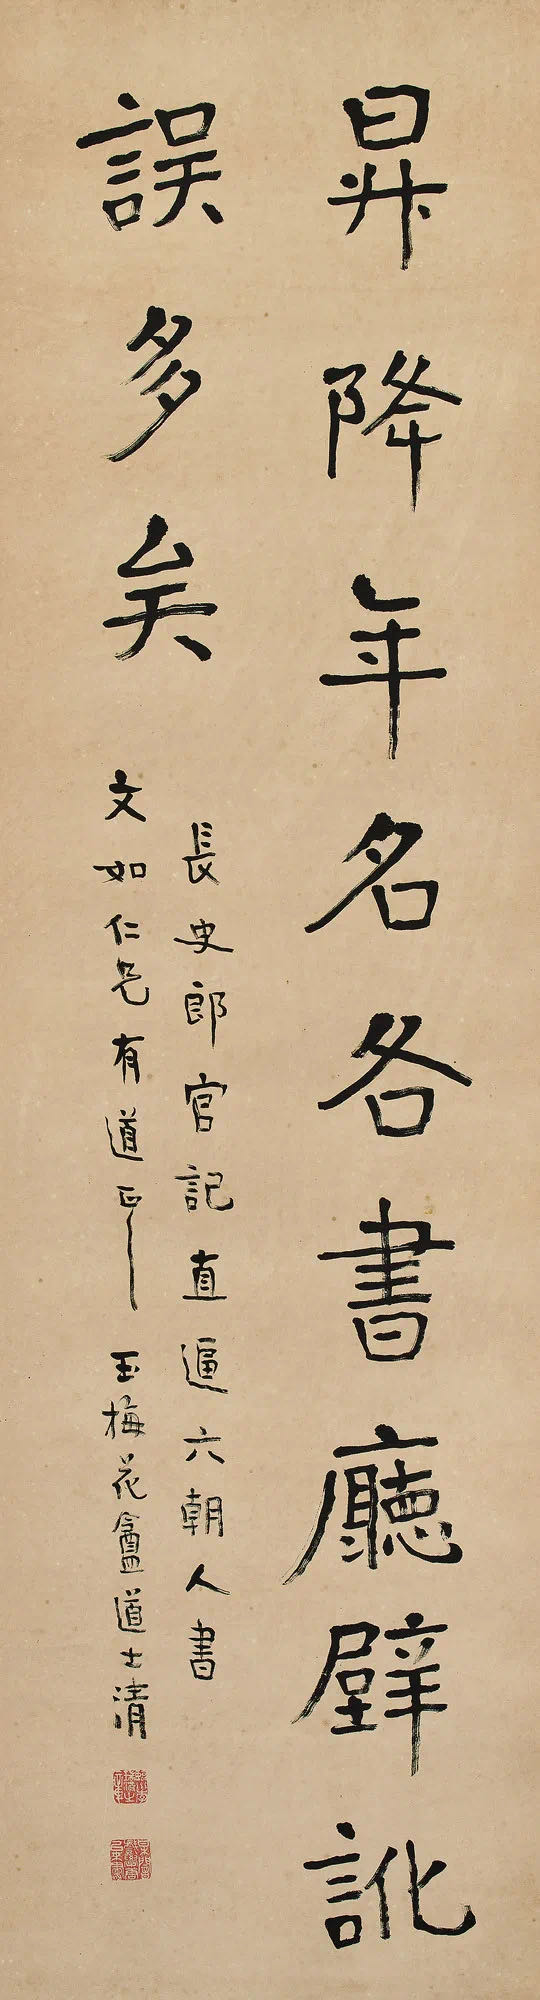 昇降年名各書廳壁訛
誤多矣
長史郎官記直逼六朝人書
文如仁兄有道正 玉梅花盦道士清